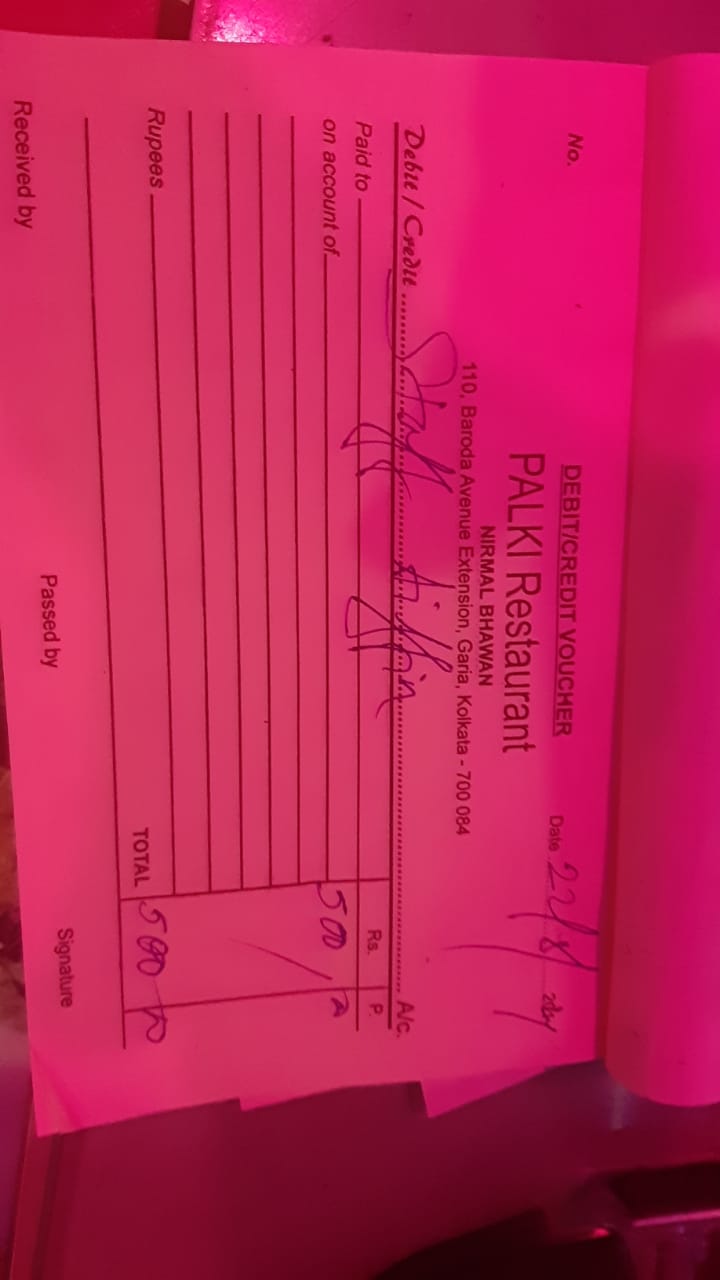 DEBIT/CREDIT VOUCHER
No.
Date 22/8/
PALKI Restaurant
NIRMAL BHAWAN
110, Baroda Avenue Extension, Garia, Kolkata - 700 084
Debit / Credit Staff tiffin A/c.
Paid to Rs. P.
on account of 500
Rupees TOTAL 500
Received by Passed by Signature